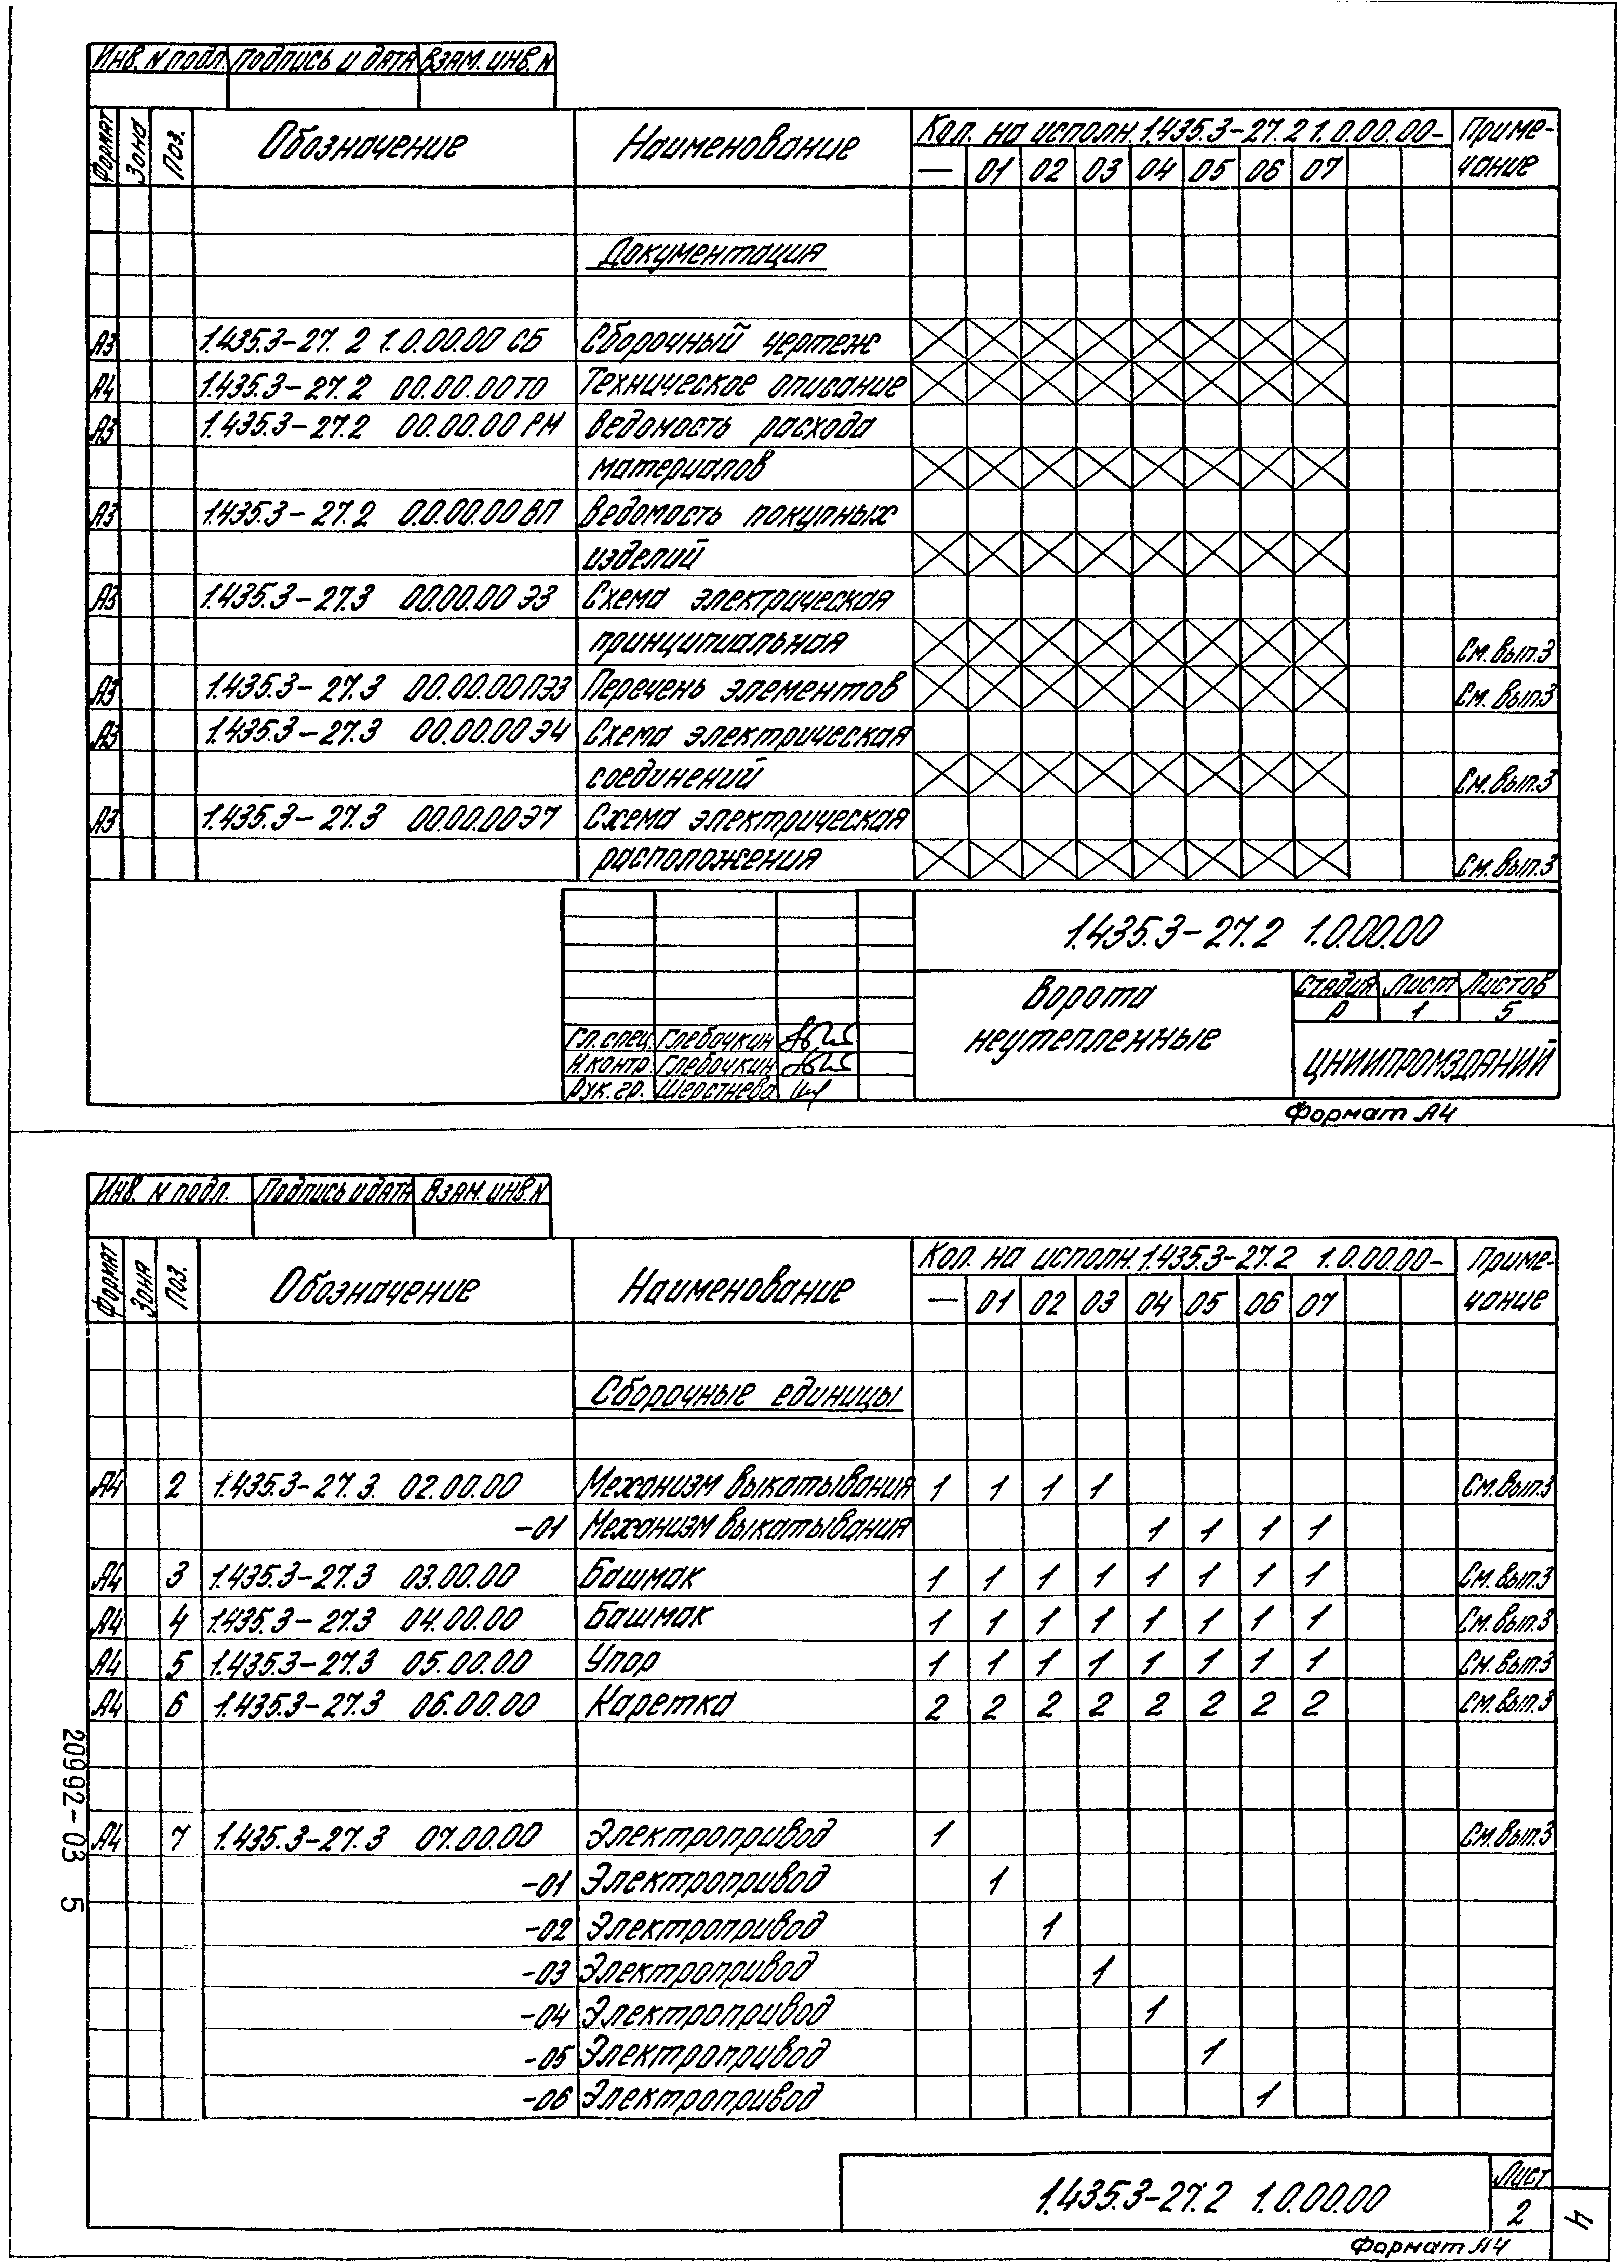 Инв. N подл. Подпись и дата Взам. инв. N
Формат Зона Поз. Обозначение Наименование Кол. на исполн. 1.435.3-27.2 1.0.00.00- Приме-
— 01 02 03 04 05 06 07 чание
Документация
А3 1.435.3-27.2 1.0.00.00 СБ Сборочный чертеж
А4 1.435.3-27.2 00.00.00 ТО Техническое описание
А3 1.435.3-27.2 00.00.00 РМ Ведомость расхода
материалов
А3 1.435.3-27.2 0.0.00.00 ВП Ведомость покупных
изделий
А3 1.435.3-27.3 00.00.00 Э3 Схема электрическая
принципиальная См. вып.3
А3 1.435.3-27.3 00.00.00 ПЭ3 Перечень элементов См. вып.3
А3 1.435.3-27.3 00.00.00 Э4 Схема электрическая
соединений См. вып.3
А3 1.435.3-27.3 00.00.00 Э7 Схема электрическая
расположения См. вып.3
1.435.3-27.2 1.0.00.00
Ворота
неутепленные
Стадия Лист Листов
Р 1 5
Гл. спец. Глебочкин
Н. контр. Глебочкин
Рук. гр. Шерстнева
ЦНИИПРОМЗДАНИЙ
Формат А4
Инв. N подл. Подпись и дата Взам. инв. N
Формат Зона Поз. Обозначение Наименование Кол. на исполн. 1.435.3-27.2 1.0.00.00- Приме-
— 01 02 03 04 05 06 07 чание
Сборочные единицы
А4 2 1.435.3-27.3. 02.00.00 Механизм выкатывания 1 1 1 1 См. вып.3
-01 Механизм выкатывания 1 1 1 1
А4 3 1.435.3-27.3 03.00.00 Башмак 1 1 1 1 1 1 1 1 См. вып.3
А4 4 1.435.3-27.3 04.00.00 Башмак 1 1 1 1 1 1 1 1 См. вып.3
А4 5 1.435.3-27.3 05.00.00 Упор 1 1 1 1 1 1 1 1 См. вып.3
А4 6 1.435.3-27.3 06.00.00 Каретка 2 2 2 2 2 2 2 2 См. вып.3
А4 7 1.435.3-27.3 07.00.00 Электропривод 1 См. вып.3
-01 Электропривод 1
-02 Электропривод 1
-03 Электропривод 1
-04 Электропривод 1
-05 Электропривод 1
-06 Электропривод 1
20992-03 5
1.435.3-27.2 1.0.00.00
Лист
2
4
Формат А4